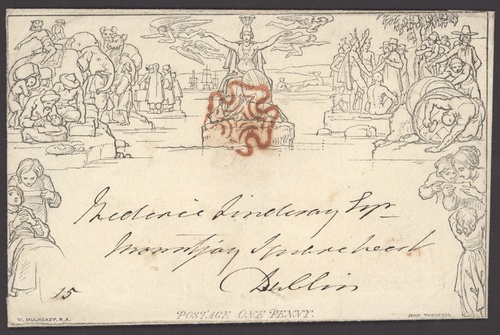 Frederic Lindesay Esqr
Mountjoy Square West
Dublin
15
POSTAGE ONE PENNY.
W. MULREADY. R.A.
JOHN THOMPSON